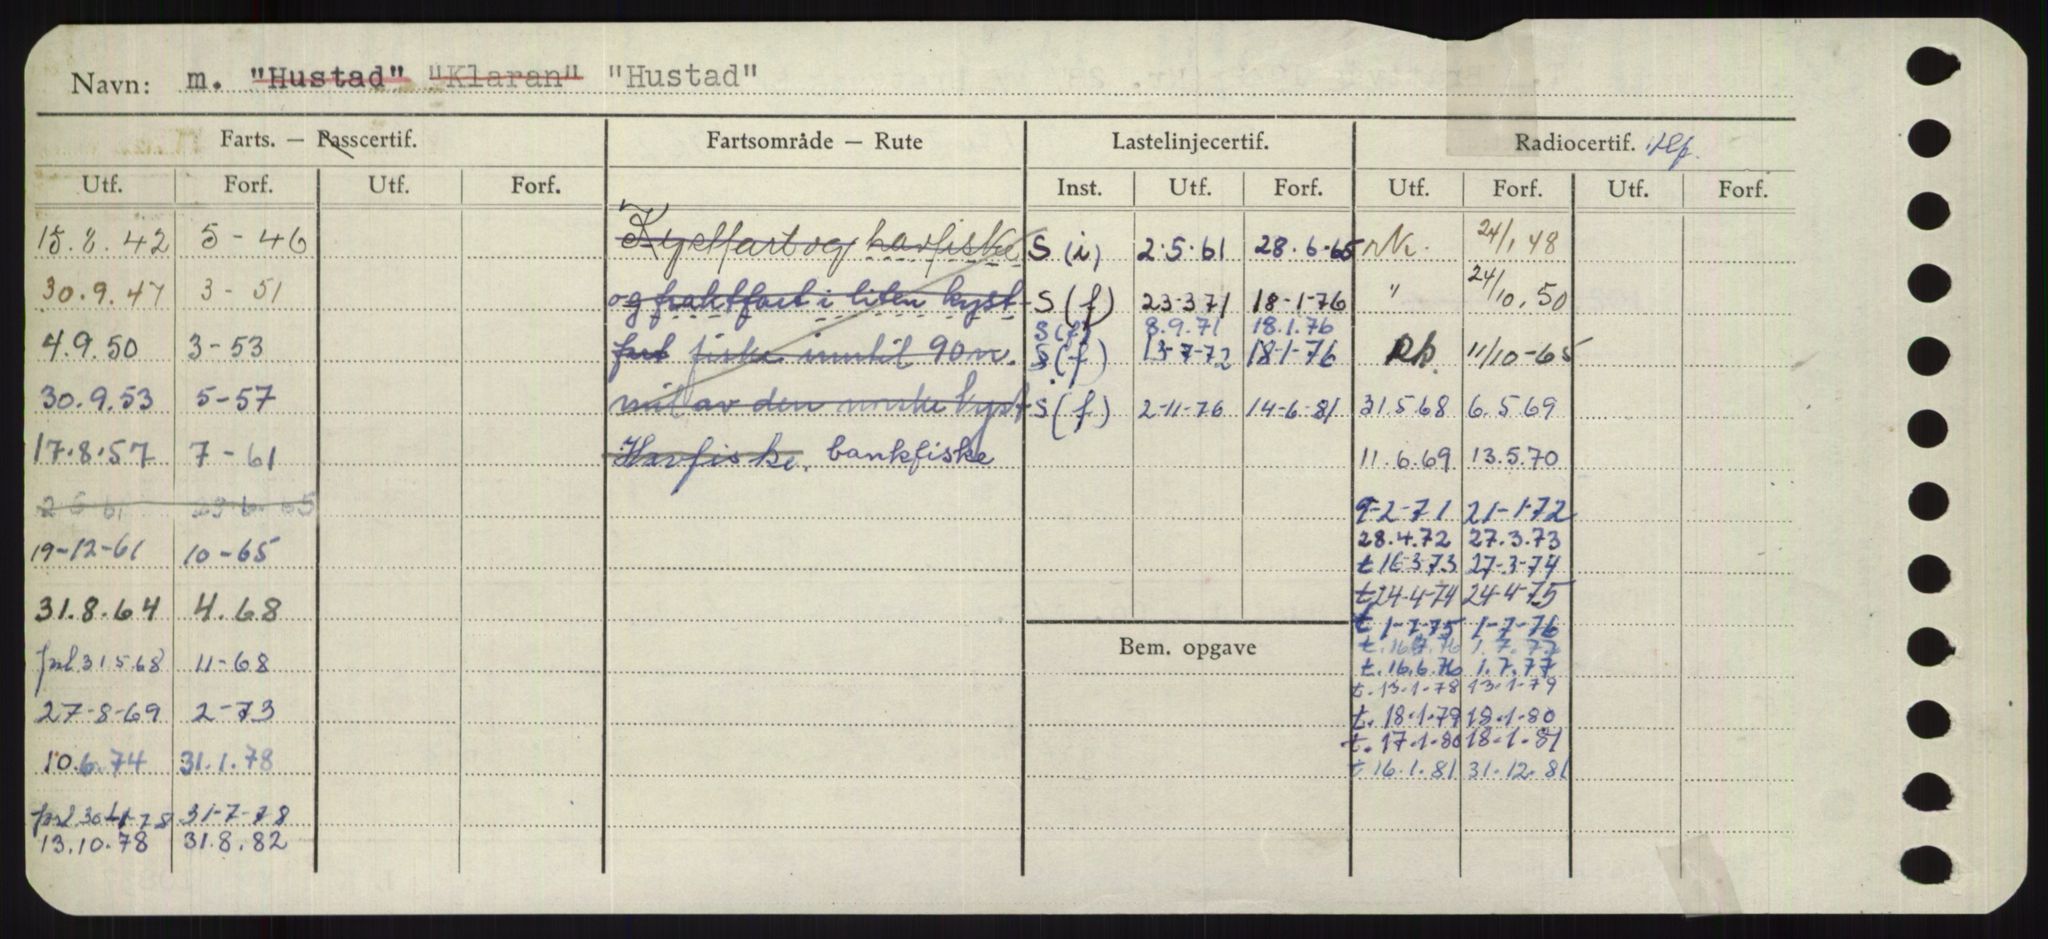 Navn: m. "Hustad" "Klaran" "Hustad"
Farts. — Passcertif. Fartsområde — Rute Lastelinjecertif. Radiocertif. Tlf.
Utf. Forf. Utf. Forf. Inst. Utf. Forf. Utf. Forf. Utf. Forf.
15.8.42 5-46 Kystfart og havfiske S (i) 2.5.61 28.6-65 24/1 48
30.9.47 3-51 og fraktfart i liten kyst- S (f) 23-3 71 18-1-76 " 24/10.50
S (f) 8.9.71 18.1.76
4.9.50 3-53 fart fiske inntil 90 n. S (f) 13-7-72 18-1-76 Rp. 11/10-65
30.9.53 5-57 mil av den norske kyst S (f) 2-11-76 14-6-81 31.5 68 6.5 69
17.8.57 7-61 Havfiske, bankfiske 11.6.69 13.5.70
2 5 61 65 9-2-71 21-1-72
28.4.72 27.3.73
19-12-61 10-65 t 16-3-73 27-3-74
31.8.64 4.68 t 24-4-74 24-4-75
t 1-7-75 1-7-76
Bem. opgave t. 1.7.77
frl 31 5 68 11-68 t. 16.6.76 1.7.77
t. 13-1-78 13-1-79
27-8-69 2-73 t. 18.1.79 18-1-80
t. 17-1-80 18-1-81
10.6.74 31.1.78 t 16.1.81 31.12.81
frl 30 1-78 31-7-78
13.10.78 31.8.82